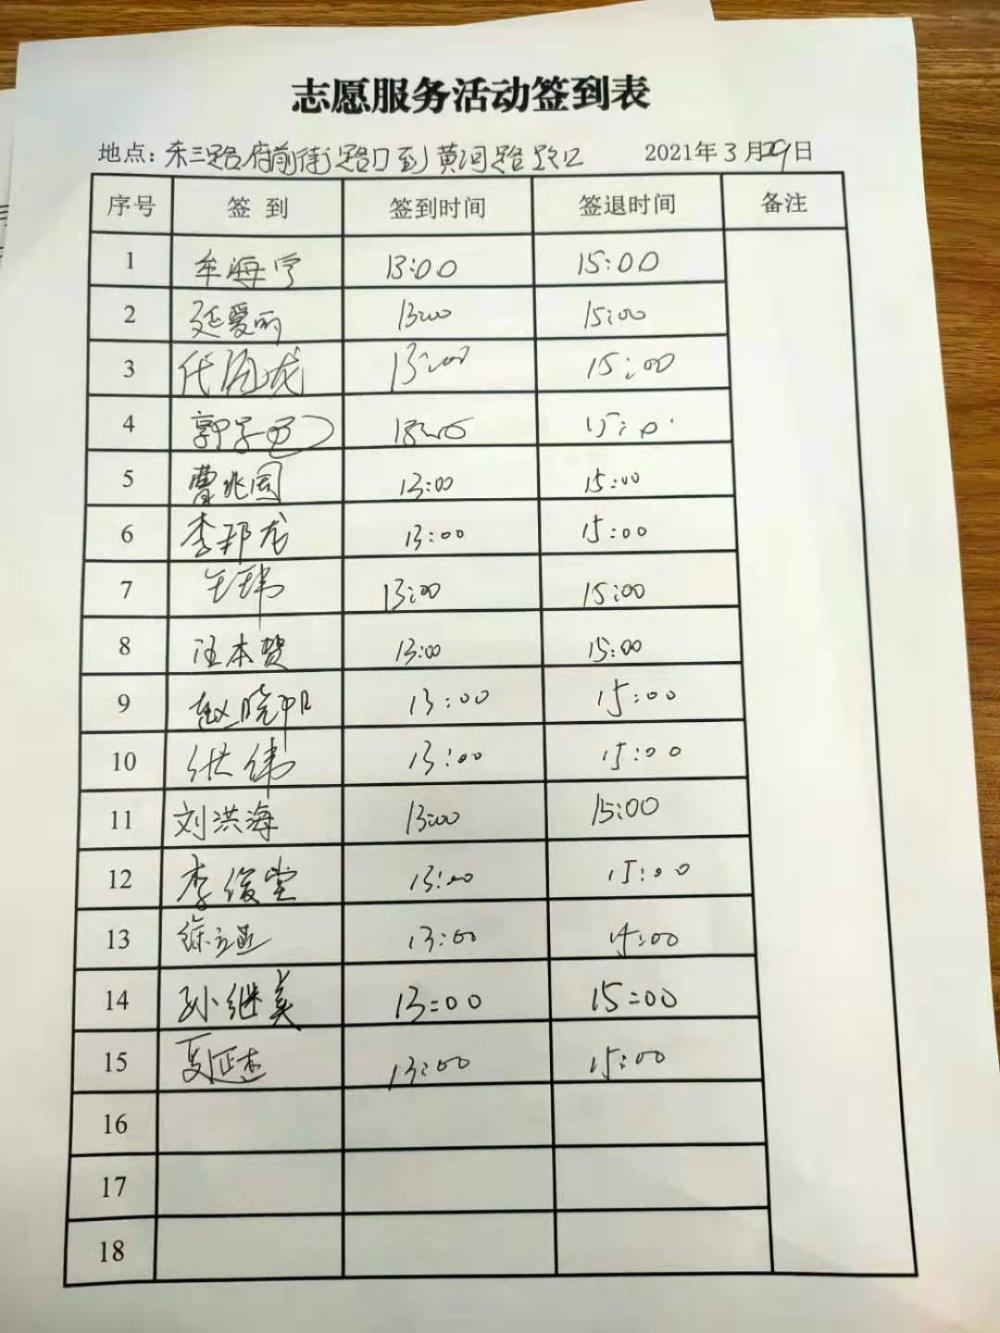 志愿服务活动签到表
地点:东三路府前街路口到黄河路路口 2021年3月29日
序号 签到 签到时间 签退时间 备注
1 牟海宁 13:00 15:00
2 延爱丽 13:00 15:00
3 代 龙 13:00 15:00
4 郭 15:0
5 曹兆国 13:00 15:00
6 李邦龙 13:00 15:00
7 王玮 13:00 15:00
8 汪本贺 13:00 15:00
9 赵晓阳 13:00 15:00
10 伟 13:00 15:00
11 刘洪海 13:00 15:00
12 李俊堂 13:00 15:00
13 徐 13:00 15:00
14 孙继美 13:00 15:00
15 夏延杰 13:00 15:00
16
17
18